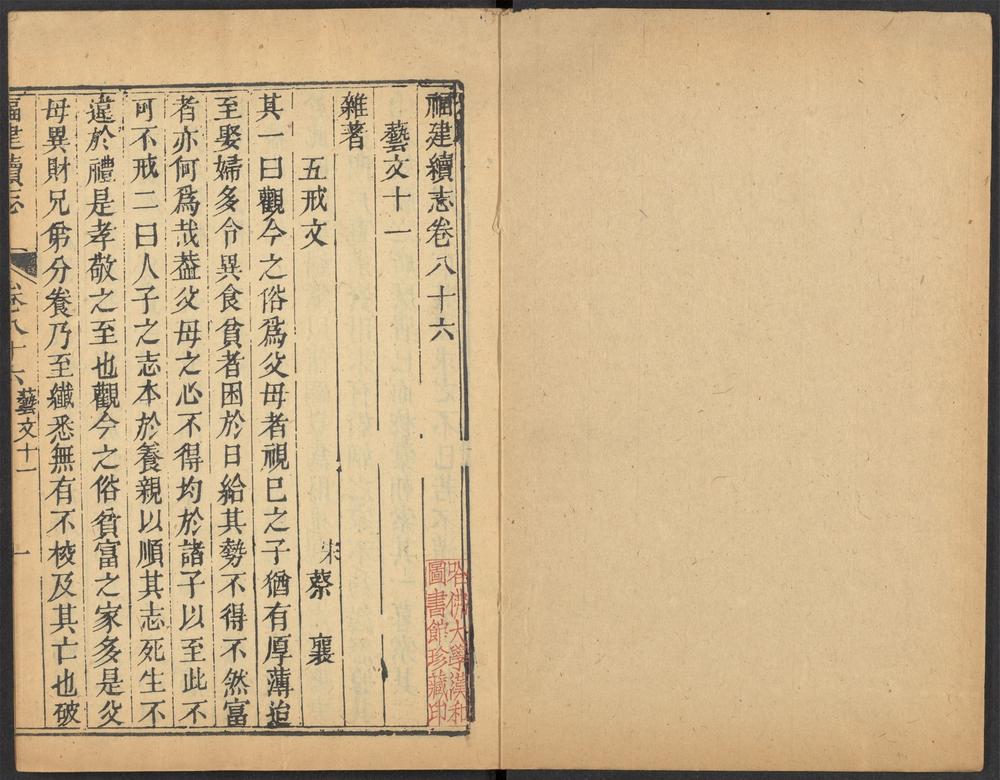 福建續志卷八十六
藝文十一
雜著
五戒文
宋蔡襄
其一曰觀今之俗爲父母者視已之子猶有厚薄迨
至娶婦多令異食貧者困於日給其勢不得不然富
者亦何爲哉葢父母之心不得均於諸子以至此不
可不戒二曰人子之志本於養親以順其志死生不
違於禮是孝敬之至也觀今之俗貧富之家多是父
母異財兄弟分養乃至纎悉無有不校及其亡也破
福建續志
卷八十六
藝文十一
一
哈佛大學漢和
圖書館珍藏印